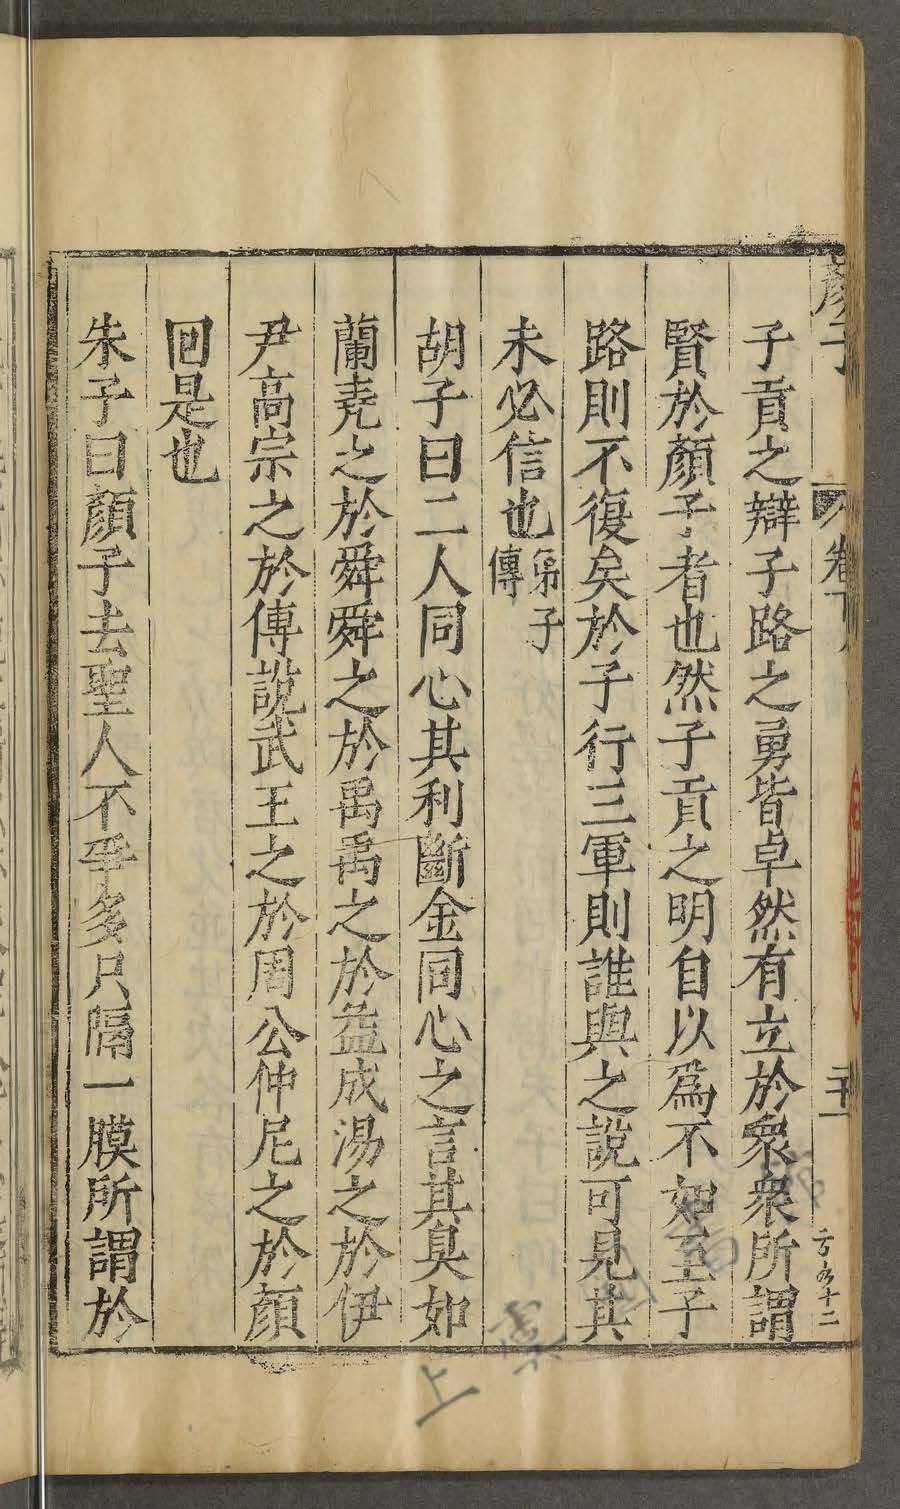 顏子
卷下
子貢之辯子路之勇皆卓然有立於衆衆所謂
賢於顏子者也然子貢之明自以爲不如至子
路則不復矣於子行三軍則誰與之說可見其
未必信也弟子傳
胡子曰二人同心其利斷金同心之言其臭如
蘭堯之於舜舜之於禹禹之於益成湯之於伊
尹高宗之於傳說武王之於周公仲尼之於顏
回是也
朱子曰顏子去聖人不爭多只隔一膜所謂於
上